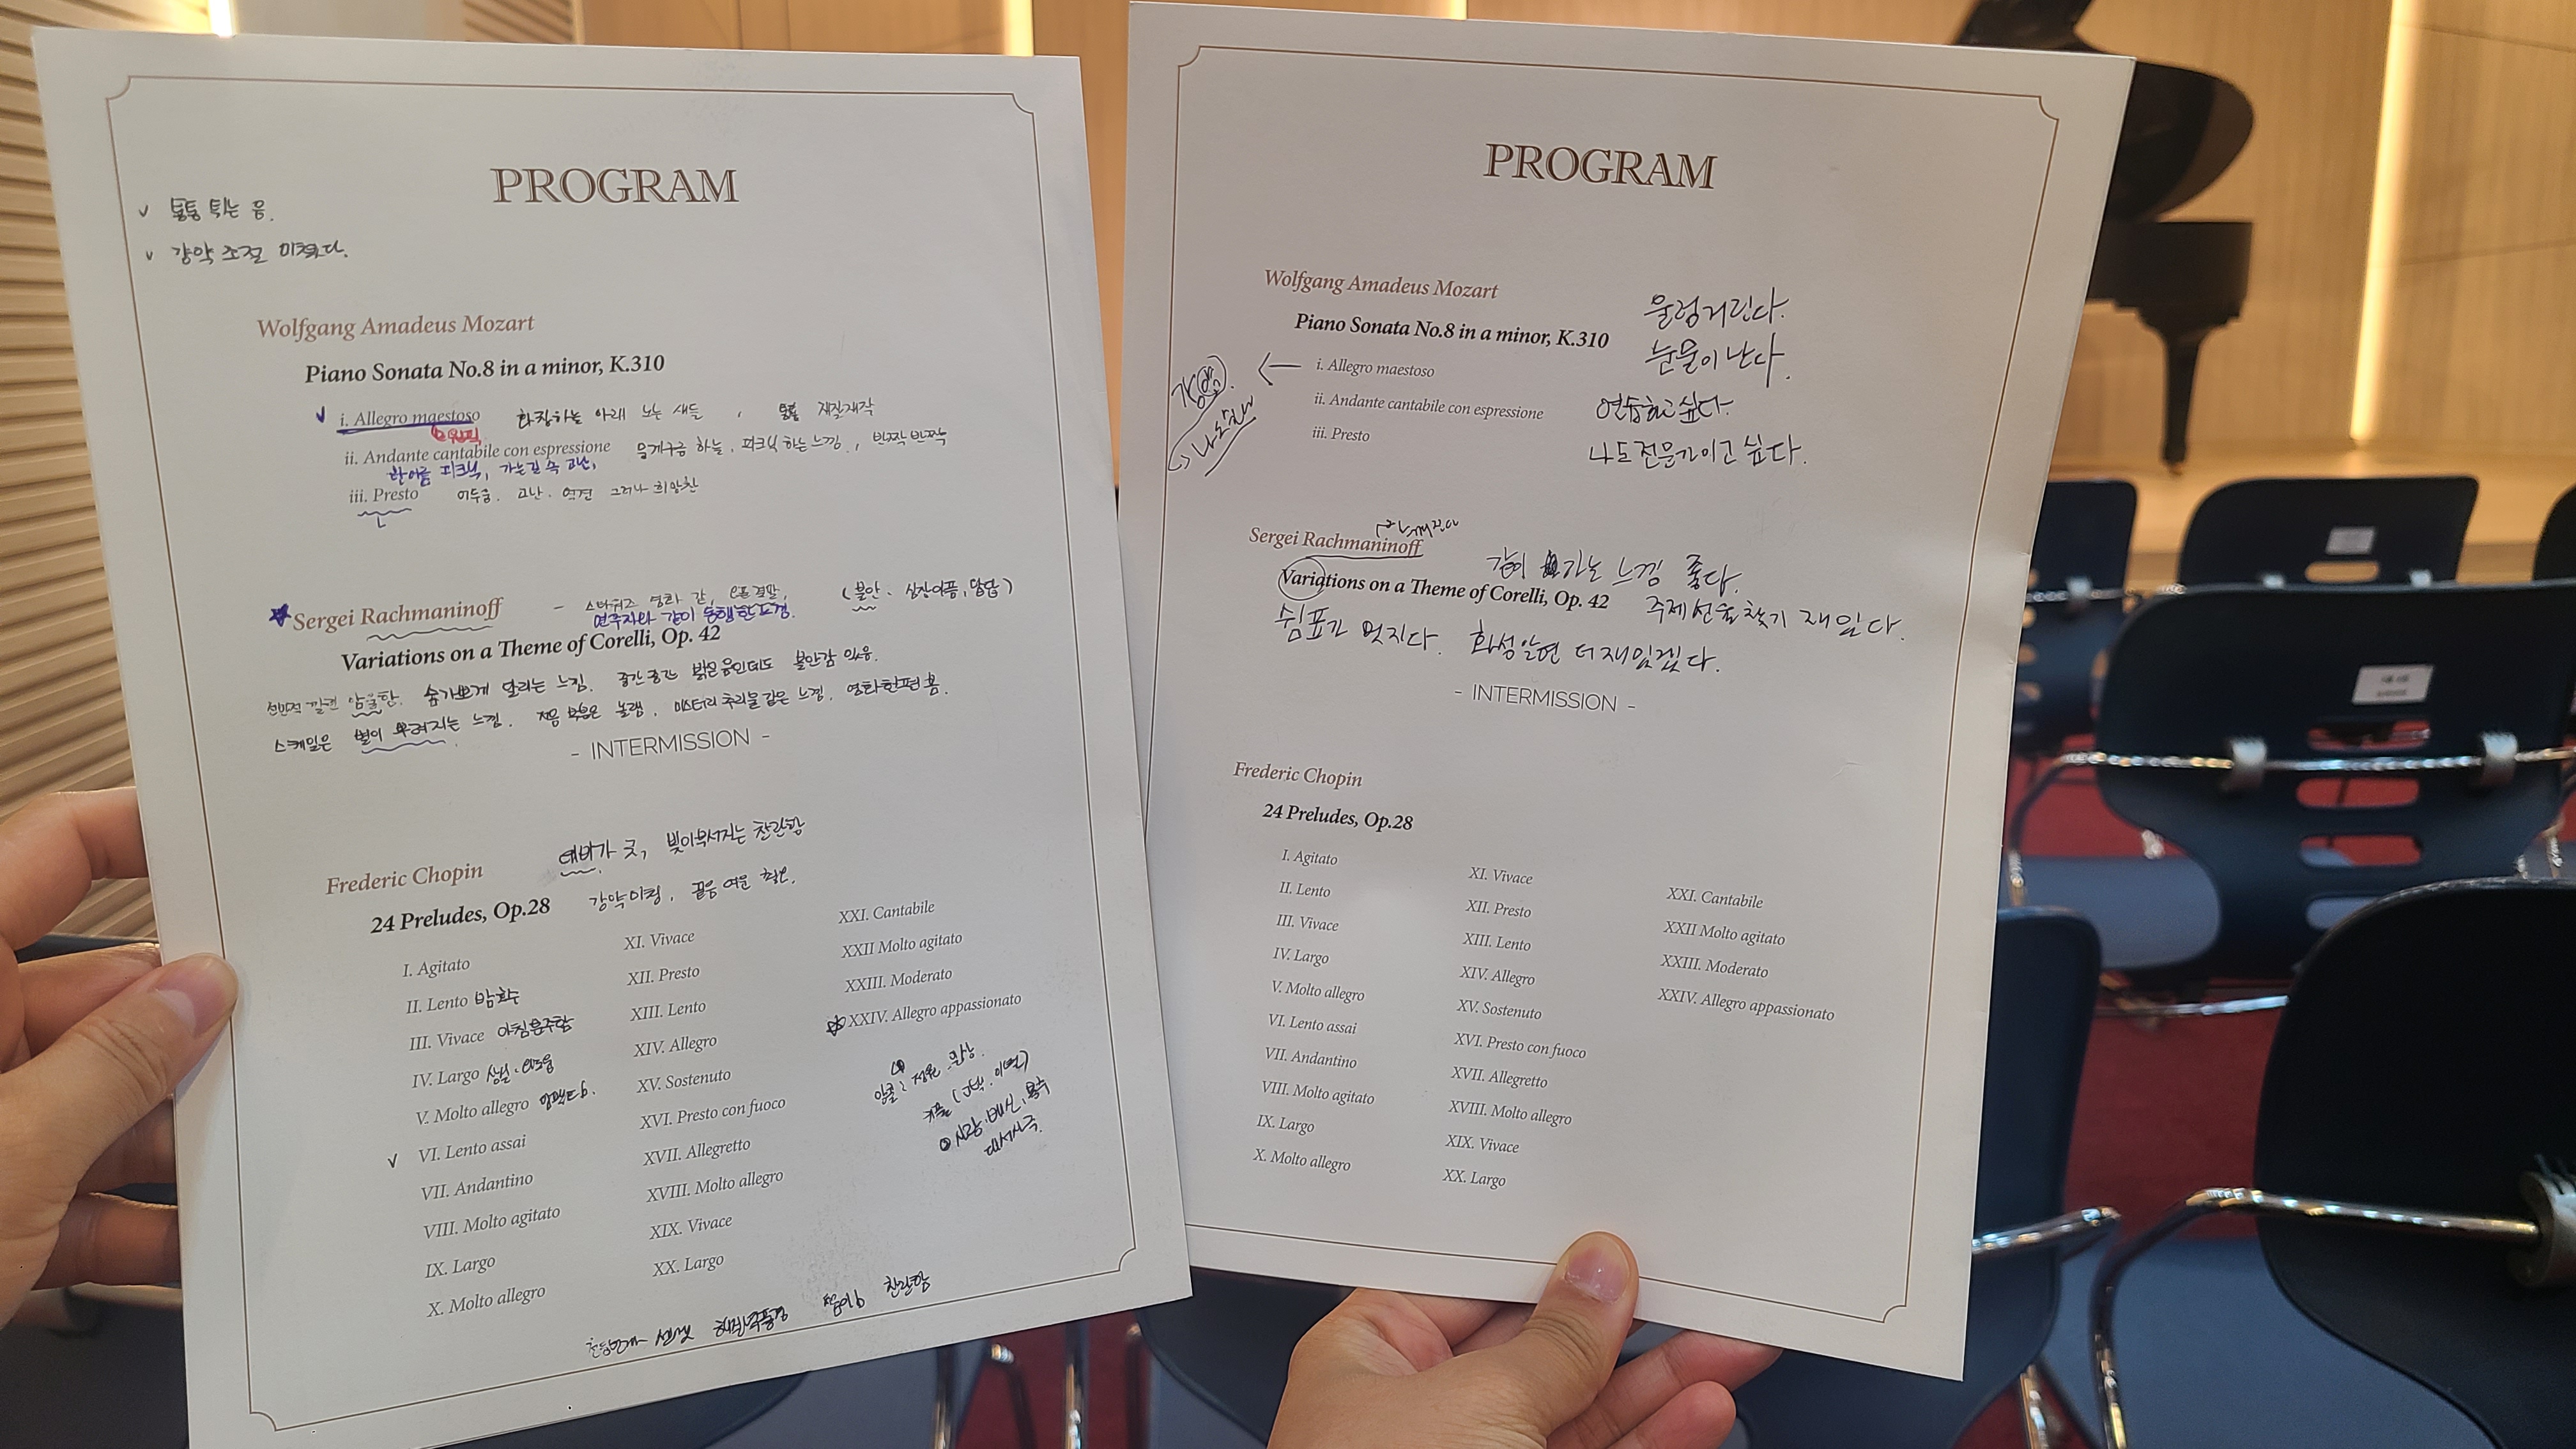 PROGRAM
v 통통 튀는 음.
v 강약 조절 미쳤다.
Wolfgang Amadeus Mozart
Piano Sonata No.8 in a minor, K.310
i. Allegro maestoso 화창하늘 아래 노는 새들, 재잘재작
ii. Andante cantabile con espressione 뭉게구름 하늘, 피크닉 하는 느낌, 반짝반짝
한여름 피크닉, 가는길 속 고난,
iii. Presto 어두움. 고난. 역경 그러나 희망찬
- 영화 간, 결말, (불안. 심장어픔, 답답)
Sergei Rachmaninoff 연주자와 같이 동행한 느낌.
Variations on a Theme of Corelli, Op. 42
전반적 깔린 암울함. 숨가쁘게 달리는 느낌. 중간중간 밝은음인데도 불안감 있음.
스케일은 별이 부려지는 느낌. 저음 볶음은 놀램. 미스터리 추리물 같은 느낌. 영화한편 봄.
- INTERMISSION -
대비가 굿, 빛이부서지는 찬란함
Frederic Chopin
강약 미침. 끝음 여운
24 Preludes, Op.28
I. Agitato
II. Lento 밤
III. Vivace 아침분주함
IV. Largo 상실.
V. Molto allegro
v VI. Lento assai
VII. Andantino
VIII. Molto agitato
IX. Largo
X. Molto allegro
XI. Vivace
XII. Presto
XIII. Lento
XIV. Allegro
XV. Sostenuto
XVI. Presto con fuoco
XVII. Allegretto
XVIII. Molto allegro
XIX. Vivace
XX. Largo
XXI. Cantabile
XXII Molto agitato
XXIII. Moderato
XXIV. Allegro appassionato
앙콜:
커플 (고백. 이별)
② 사랑, 배신, 복수
대서사극.
찬란함
PROGRAM
Wolfgang Amadeus Mozart
Piano Sonata No.8 in a minor, K.310
i. Allegro maestoso
ii. Andante cantabile con espressione
iii. Presto
울렁거린다.
눈물이 난다.
연습하고싶다.
나도전문가이고 싶다.
강약.
Sergei Rachmaninoff
Variations on a Theme of Corelli, Op. 42
같이 가는 느낌 좋다.
주제선율찾기 재밌다.
쉼표가 멋지다. 화성알면 더재밌겠다.
- INTERMISSION -
Frederic Chopin
24 Preludes, Op.28
I. Agitato
II. Lento
III. Vivace
IV. Largo
V. Molto allegro
VI. Lento assai
VII. Andantino
VIII. Molto agitato
IX. Largo
X. Molto allegro
XI. Vivace
XII. Presto
XIII. Lento
XIV. Allegro
XV. Sostenuto
XVI. Presto con fuoco
XVII. Allegretto
XVIII. Molto allegro
XIX. Vivace
XX. Largo
XXI. Cantabile
XXII Molto agitato
XXIII. Moderato
XXIV. Allegro appassionato